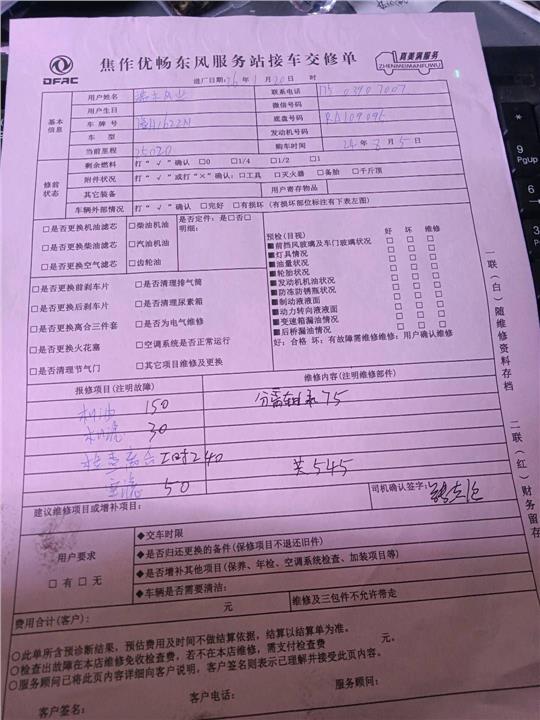 DFAC
焦作优畅东风服务站接车交修单
真美满服务
ZHENMEIMANFUWU
进厂日期: 26年1月20日 时
基本信息
用户姓名
联系电话 175 0390 7007
用户生日
微信号码
车牌号
底盘号码 RA109096
车型
发动机号码
当前里程 25020
购车时间 24年3月5日
修前状态
剩余燃料 打“√”确认 □0 □1/4 □1/2 □1
附件状况 打“√”或打“×”确认: □工具 □灭火器 □备胎 □千斤顶
其它装备
用户寄存物品
车辆外部情况 打“√”确认 □完好 □有损坏(有损坏部位标注有下表左图)
□是否更换机油滤芯 □柴油机油 是否定件: 是□否□
□是否更换柴油滤芯 □汽油机油 明细:
□是否更换空气滤芯 □齿轮油
预检(目视) 好 坏 维修
■前挡风玻璃及车门玻璃状况 □ □ □
■灯具情况 □ □ □
■油量状况 □ □ □
■轮胎状况 □ □ □
■发动机机油状况 □ □ □
■防冻防锈瓶状况 □ □ □
■制动液液面 □ □ □
■动力转向液液面 □ □ □
■变速箱漏油情况 □ □ □
■后桥漏油情况 □ □ □
好: 合格 坏: 有故障需维修维修: 用户确认维修
□是否更换前刹车片 □是否清理排气筒
□是否更换后刹车片 □是否清理尿素箱
□是否更换离合三件套 □是否为电气维修
□是否更换火花塞 □空调系统是否正常运行
□是否清理节气门 □其它项目维修及更换
报修项目(注明故障)
维修内容(注明维修部件)
机油 150
分离轴承 75
机滤 30
检查离合 工时240
共545
空滤 50
建议维修项目或增补项目:
司机确认签字:
用户要求
□有 □无
◆交车时限
◆是否归还更换的备件(保修项目不退还旧件)
◆是否增补其他项目(保养、年检、空调系统检查、加装项目等)
◆车辆是否需要清洁:
费用合计(客户): 元 维修及三包件不允许带走
○此单所含预诊断结果,预估费用及时间不做结算依据,结算以结算单为准。
○检查出故障在本店维修免收检查费,若不在本店维修,需支付检查费 元。
○服务顾问已将此页内容详细向客户说明,客户签名则表示已理解并接受此页内容。
客户签名: 客户电话: 服务顾问:
一联(白)随维修资料存档
二联(红)财务留存